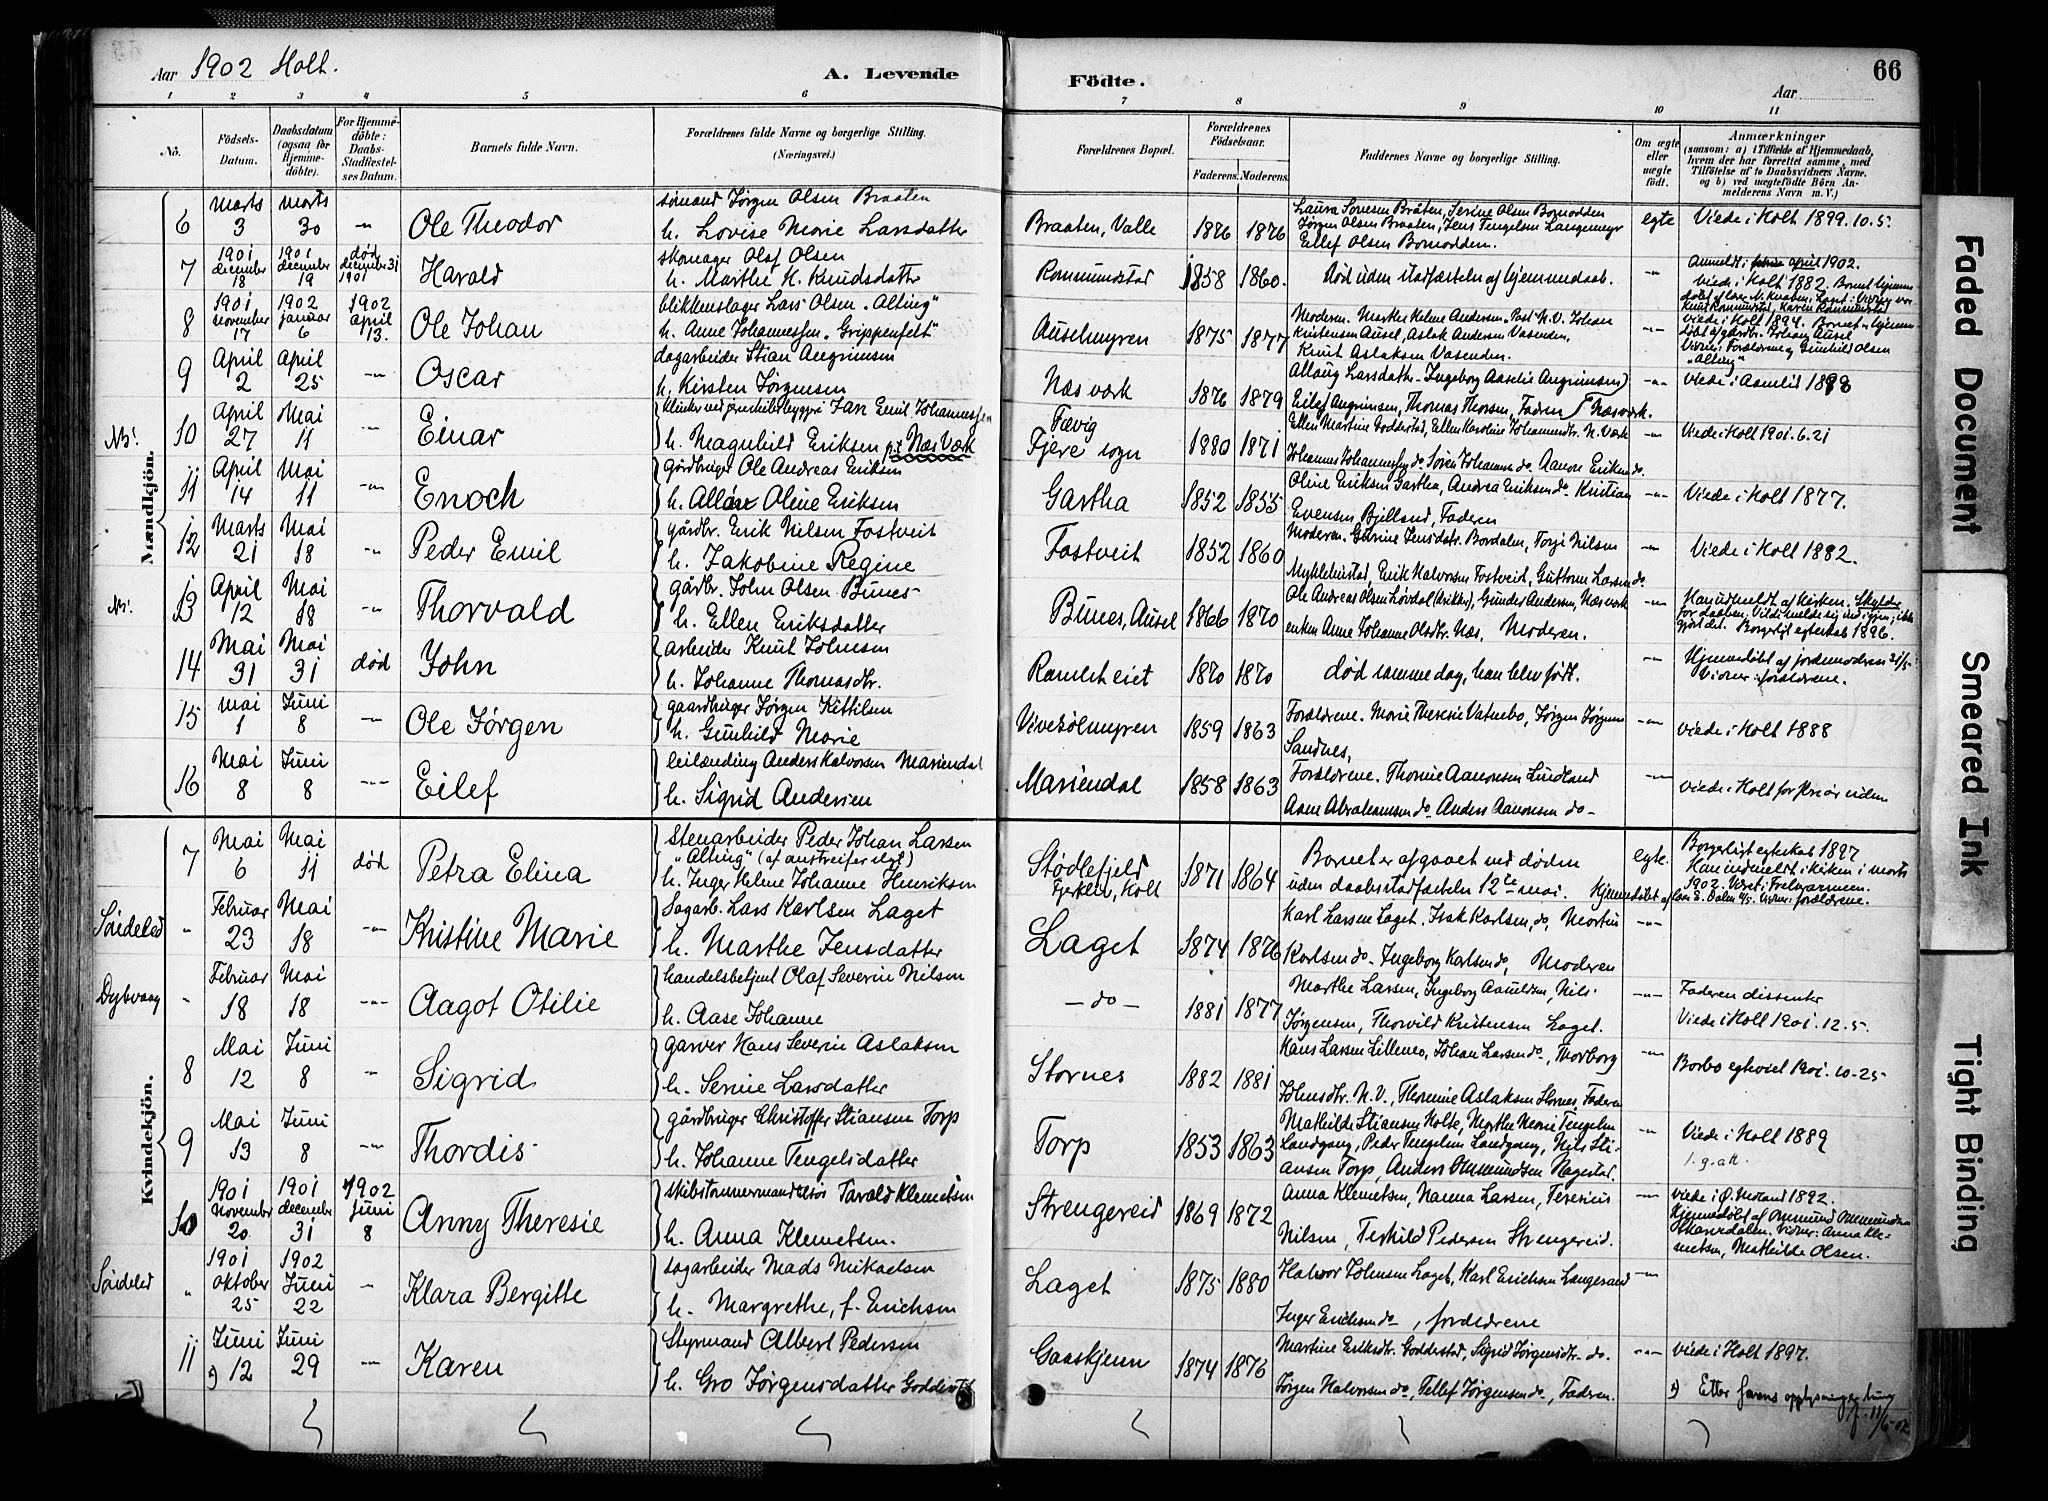 Aar 1902 Holt.
A. Levende Födte.
66
Aar
1 2 3 4 5 6 7 8 9 10 11
Nö.
Födsels-Datum.
Daabsdatum (ogsaa for Hjemme-döbte).
For Hjemme-döbte: Daabs-Stadfæstel-ses Datum.
Barnets fulde Navn.
Forældrenes fulde Navne og borgerlige Stilling. (Næringsvei.)
Forældrenes Bopæl.
Forældrenes Födselsaar.
Faderens. Moderens.
Faddernes Navne og borgerlige Stilling.
Om ægte eller uægte födt.
Anmærkninger
(saasom: a) i Tilfælde af Hjemmedaab, hvem der har forrettet samme, med Tilföielse af to Daabsvidners Navne, og b) ved uægtefödte Börn An-melderens Navn m. V.)
Mandkjön.
6 Marts 3 Marts 30 -"- Ole Theodor
sömand Jörgen Olsen Braaten
h. Lovise Marie Larsdatter
Braaten, Valle 1876 1876
Laura Sorensen Bråten, Serine Olsen Bomodden
Jörgen Olsen Braaten, Jens Tengelsen Langemyr
Ellef Olsen Bomodden.
egte Viede i Holt 1899.10.5.
7 1901 december 18 1901 december 19 död december 31 1901 Harald
skomager Olaf Olsen
h. Marthe K. Knudsdatter
Rommundstad 1858 1860.
Död uden stadfæstelse af hjemmedaab.
-"- Anmeldt i april 1902.
viede i Holt 1882. Barnet hjemme
8 1901 november 17 1902 januar 6 1902 april 13. Ole Johan
blikkenslager Lars Olsen "Alting"
h. Anne Johannessen "Grippenfelt"
Auselmyren 1875 1877
Kristensen Ausel, Aslak Andersen Vasenden,
Knut Aslaksen Vasenden.
-"- viede i Holt 1894. Barnet hjemme
Vidner: Forældrene og Gunhild Olsen
"Alting"
9 April 2 April 25 -"- Oscar
dagarbeider Stian Angrimsen
h. Kirsten Jörgensen
Næs værk 1876 1879
Allaug Larsdatter - Ingeborg Aaselie Angrimsen
Eilef Angrimsen, Thomas Thorsen, Faderen Næsværk.
-"- viede i Aamlid 1898
N.! 10 April 27 Mai 11 -"- Einar
Jan Emil Johannessen
h. Magnhild Eriksen Næs Værk
Fævig
Fjære sogn 1880 1871
Ellen Martine Godderstad, Ellen Karoline Johannesdtr. N. Værk
Johannes Johannessen do Sören Johannsen do. Aanon Eriksen do.
-"- Viede i Holt 1901.6.21
11 April 14 Mai 11 -"- Enoch
gårdbruger Ole Andreas Eriksen
h. Oline Eriksen
Gartha 1852 1855
Oline Eriksen Gartha, Andrea Eriksen do. Kristian
Evensen Bjelland, Faderen
-"- Viede i Holt 1877.
12 Marts 21 Mai 18 -"- Peder Emil
gårdbr. Erik Nilsen Fostveit
h. Jakobine Regine
Fostveit 1852 1860
Moderen. Gurine Jensdatr. Bordalen, Torje Nilsen
Myklebustad, Erik Halvorsen Fostveit, Guttorm Larsen do
-"- Viede i Holt 1882.
N.! 13 April 12 Mai 18 -"- Thorvald
gårdbr. John Olsen Bunes
h. Ellen Eriksdatter
Bunes, Ausel 1866 1870
Ole Andreas Olsen Lövdal, Gunder Andersen, Næsværk
enken Anne Johanne Olsdtr. Næs, Moderen.
-"- Han udmeldt af kirken.
Borgerligt egteskab 1896.
14 Mai 31 Mai 31 död John
arbeider Knut Johnsen
h. Johanne Thomasdtr.
Ramleheiet 1870 1870
död samme dag, han blev född.
-"- Hjemmedöbt af jordemoderen 31/5
Vidner: forældrene.
15 mai 1 Juni 8 -"- Ole Jörgen
gaardbruger Jörgen Kittilsen
h. Gunhild Marie
Vivesölmyren 1859 1863
Forældrene. Marie Theresie Vatnebo, Jörgen Jörgensen
Sandnes,
-"- viede i Holt 1888
16 Mai 8 Juni 8 -"- Eilef
leilænding Anders Halvorsen Mariendal
h. Sigrid Andersen
Mariendal 1858 1863
Forældrene. Thomine Aanonsen Lindland
Aane Abrahamsen do. Anders Aanonsen do-
-"- viede i Holt for flere år siden
Kvindekjön.
7 Mai 6 Mai 11 död Petra Elina
Stenarbeider Peder Johan Larsen
"Alting"
h. Inger Helene Johanne Henriksen
Stödlefjeld
Fjerklev, Holt 1871 1864
Barnet er afgaaet ved döden
uden daabsstadfæstelse 12te mai.
egte. Borgerligt egteskab 1897
Han indmeldt i kirken i marts
1902. Været i Frelsesarmeen.
Hjemmedöbt af
Vidner: forældrene.
Söideled " Februar 23 Mai 18 -"- Kristine Marie
Sagarb. Lars Karlsen Laget
h. Marthe Jensdatter
Laget 1874 1876
Karl Larsen Laget. Isak Karlsen, do, Martin
Karlsen do- Ingeborg Karlsen do, Moderen
-"-
Dybvaag - Februar 18 Mai 18 -"- Aagot Otilie
handelsbetjent Olaf Severin Nilsen
h. Aase Johanne
- do - 1881 1877
Marthe Larsen, Ingeborg Aanuldsen, Nils
Jörgensen, Thorvild Kristensen Laget.
-"- Faderen dissenter
Viede i Holt 1901.12.5.
8 Mai 12 Juni 8 -"- Sigrid
garver Hans Severin Aslaksen
h. Serine Larsdatter
Stornes 1882 1881
Hans Larsen Lillenes, Johan Larsen do, Thorborg
Johnsdtr. N.V., Theresine Aslaksen Stornes, Faderen
-"- Borbo egteviet 1901.10-25
9 Mai 13 Juni 8 -"- Thordis
gårdbruger Christoffer Stiansen Torp
h. Johanne Tengelsdatter
Torp 1853 1863
Mathilde Stiansen Holte, Marthe Marie Tengelsen
Landgang, Peder Tengelsen Landgang, Nils Sti-
ansen Torp, Anders Ommundsen Hagestad.
-"- Viede i Holt 1889
10 1901 November 20 1901 december 31 1902 Juni 8 Anny Theresie
skibstømmermand Tarald Klemetsen
h. Anna Klemetsen.
Strengereid 1869 1872
Anna Klemetsen, Nanna Larsen, Teresius
Nilsen, Terkild Pedersen Strengereid.
-"- viede i Ö. Moland 1892.
Hjemmedöbt af Ommund Ommundsen
Vidner: Anna Kle-
metsen, Mathilde Olsen.
Söideled " 1901 Oktober 25 1902 Juni 22 -"- Klara Bergitte
sagarbeider Mads Mikaelsen
h. Margrethe, f. Erichsen
Laget 1875 1880
Halvor Johnsen Laget, Karl Erichsen Langesand
Inger Erichsen do, forældrene
-"-
11 Juni 12 Juni 29 -"- Karen
Styrmand Albert Pedersen
h. Gro Jörgensdatter
Gaaskjenn 1874 1876
Martine Eriksdtr. Godderstad, Sigrid Jörgensdtr. do.
Jörgen Halvorsen do, Tellef Jörgensen do, Faderen.
-"- viede i Holt 1897.
Etter farens
f. 11/6-02
Faded Document
Smeared Ink
Tight Binding